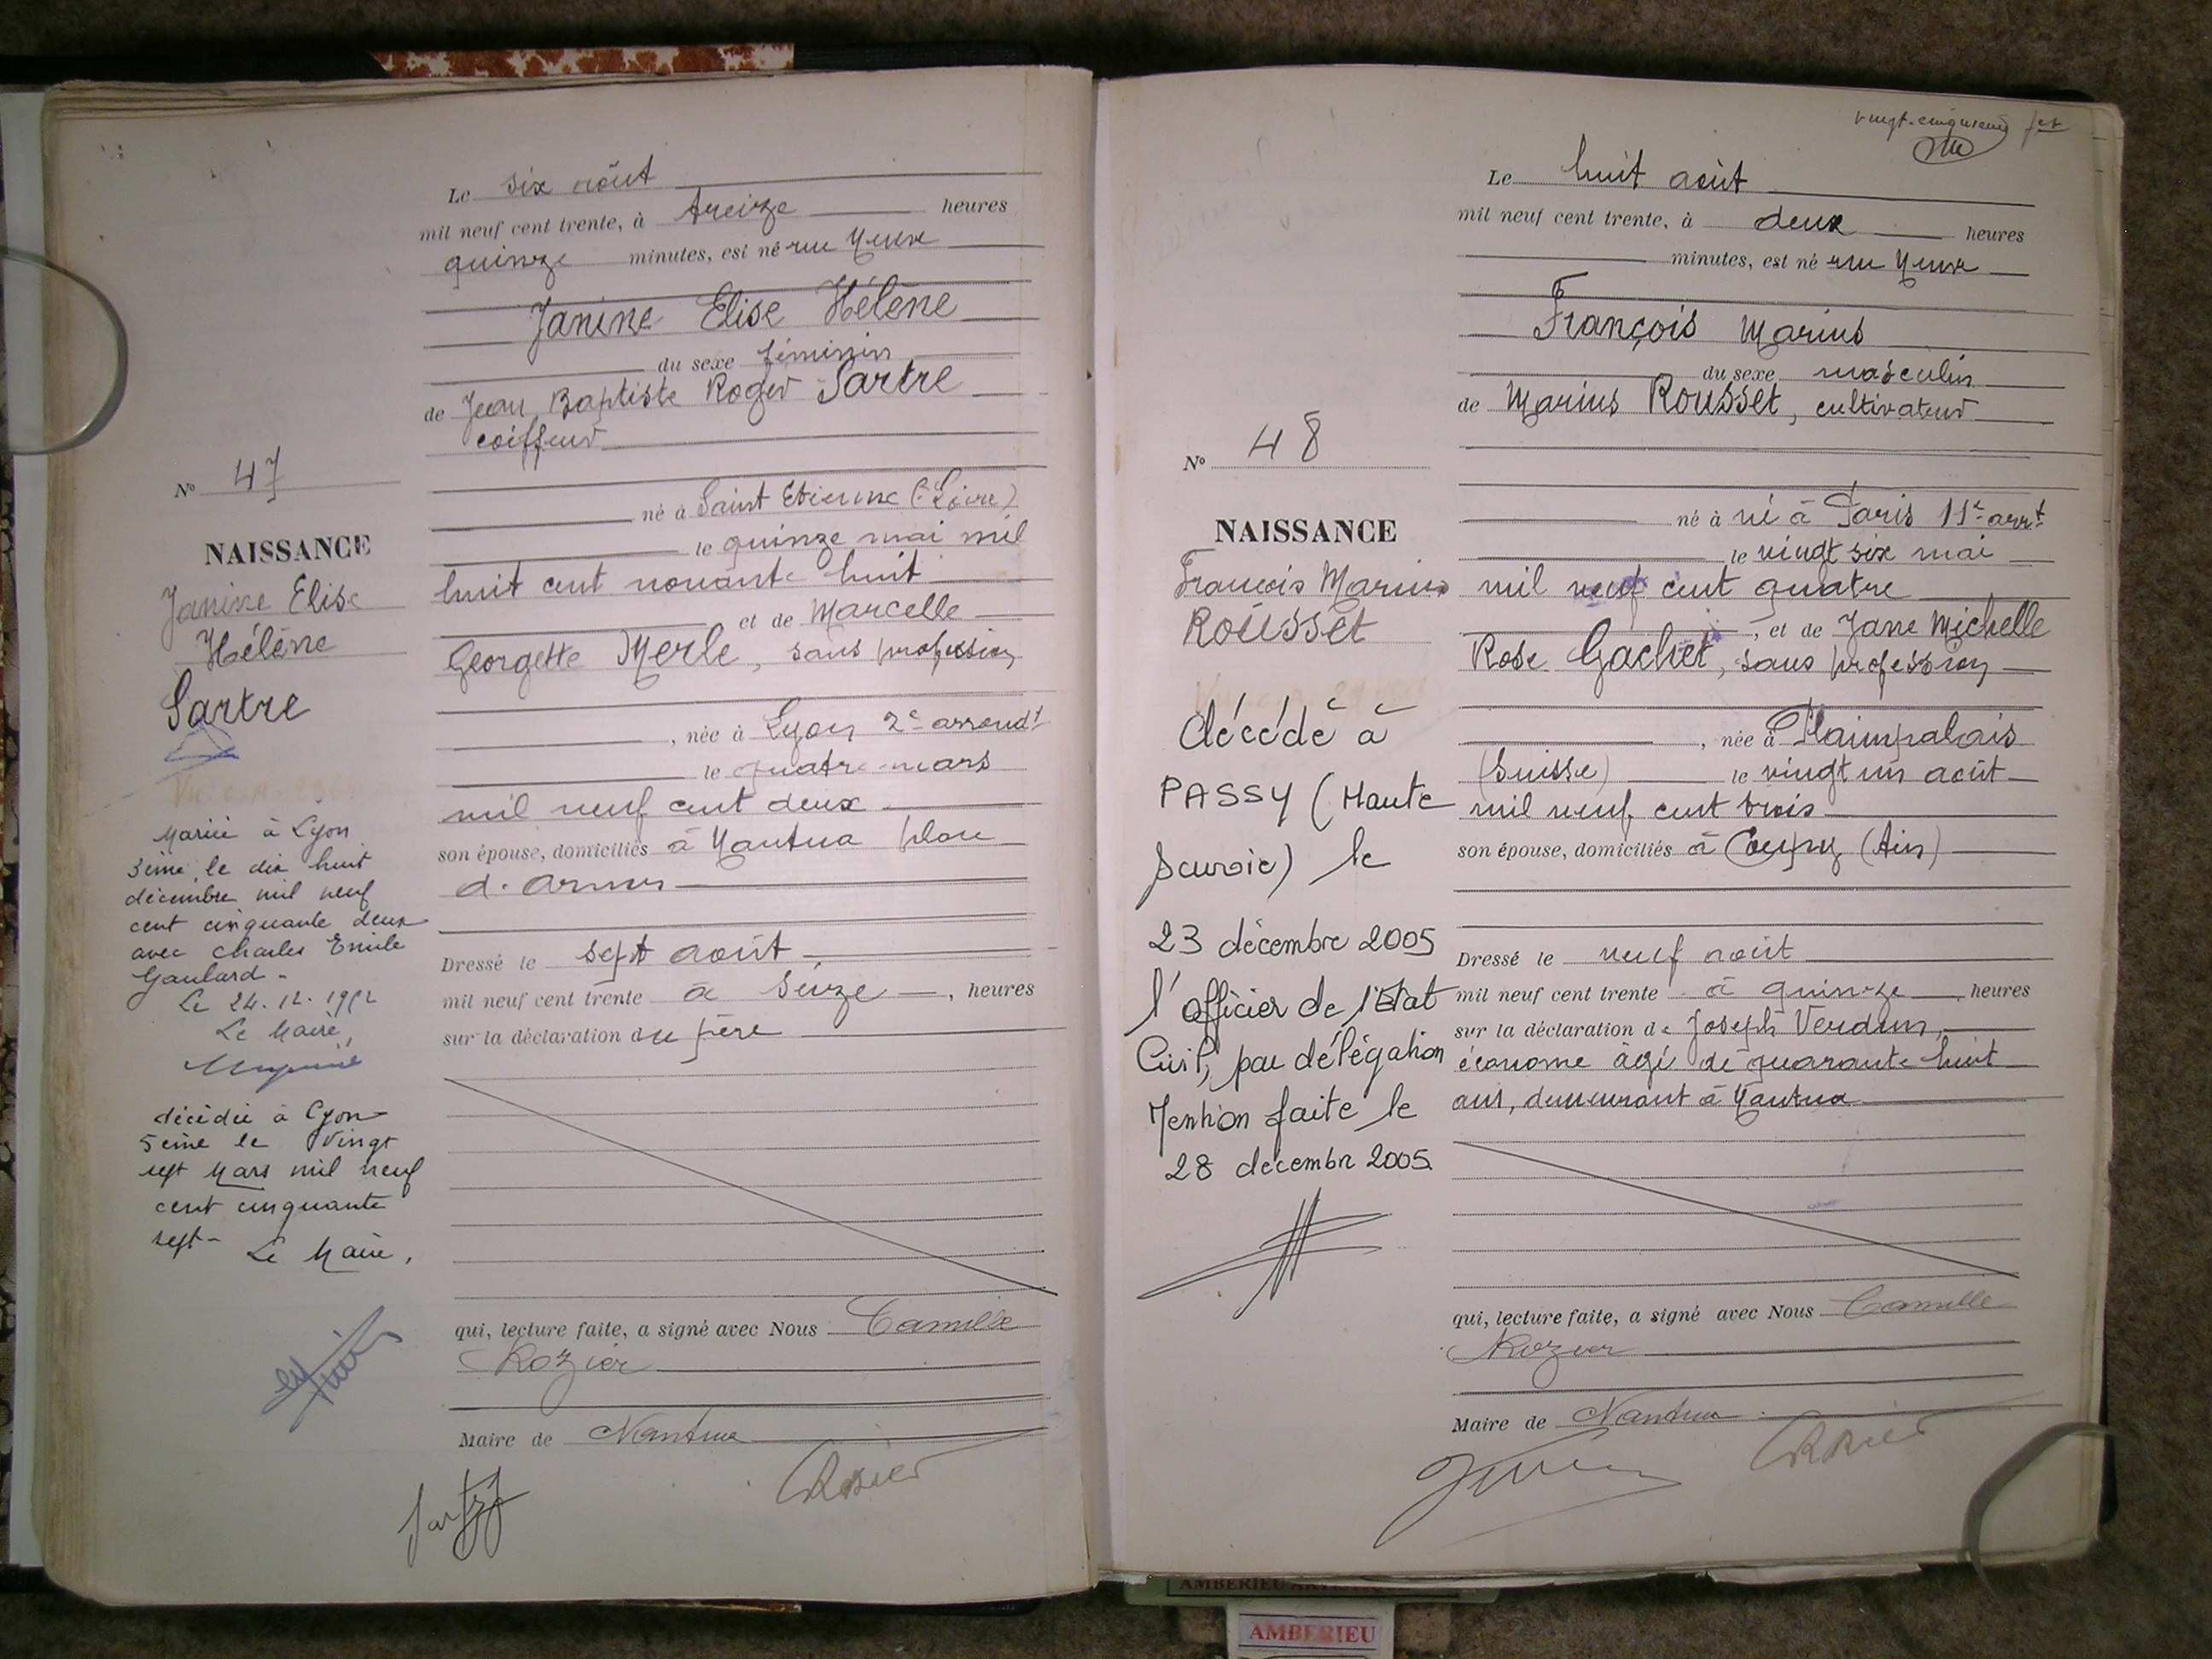 Le six août
mil neuf cent trente, à treize heures
quinze minutes, est né rue
Janine Elise Hélène
du sexe féminin
de Jean Baptiste Roger Sartre
coiffeur
N° 47
né à Saint Etienne (Loire)
le quinze mai mil
huit cent nonante huit
et de Marcelle
Georgette Merle, sans profession
, née à Lyon 2e arrondt
le quatre mars
mil neuf cent deux
son épouse, domiciliés à Nantua place
d'armes
Dressé le sept août
mil neuf cent trente à seize , heures
sur la déclaration du père
NAISSANCE
Janine Elise
Hélène
Sartre
Mariée à Lyon
3ème, le dix huit
décembre mil neuf
cent cinquante deux
avec Charles Emile
Gaulard -
Le 24.12.1952
Le Maire,
décédée à Lyon
5ème le vingt
sept Mars mil neuf
cent cinquante
sept -
Le Maire,
qui, lecture faite, a signé avec Nous Camille
Rozier
Maire de Nantua
Rozier
Le huit août
mil neuf cent trente, à deux heures
minutes, est né rue
François Marius
du sexe masculin
de Marius Rousset, cultivateur
N° 48
né à né à Paris 11e arrt
le vingt six mai
mil neuf cent quatre
, et de Jane Michelle
Rose Gachet, sans profession
, née à Plainpalais
(Suisse) le vingt un août
mil neuf cent trois
son épouse, domiciliés à (Ain)
Dressé le neuf août
mil neuf cent trente à quinze , heures
sur la déclaration de Joseph Verdun,
économe âgé de quarante huit
ans, demeurant à Nantua
NAISSANCE
François Marius
Rousset
décédé à
PASSY (Haute
Savoie) le
23 décembre 2005
l'officier de l'Etat
Civil, par délégation
Mention faite le
28 décembre 2005
qui, lecture faite, a signé avec Nous Camille
Rozier
Maire de Nantua
Rozier
AMBERIEU
AMBERIEU